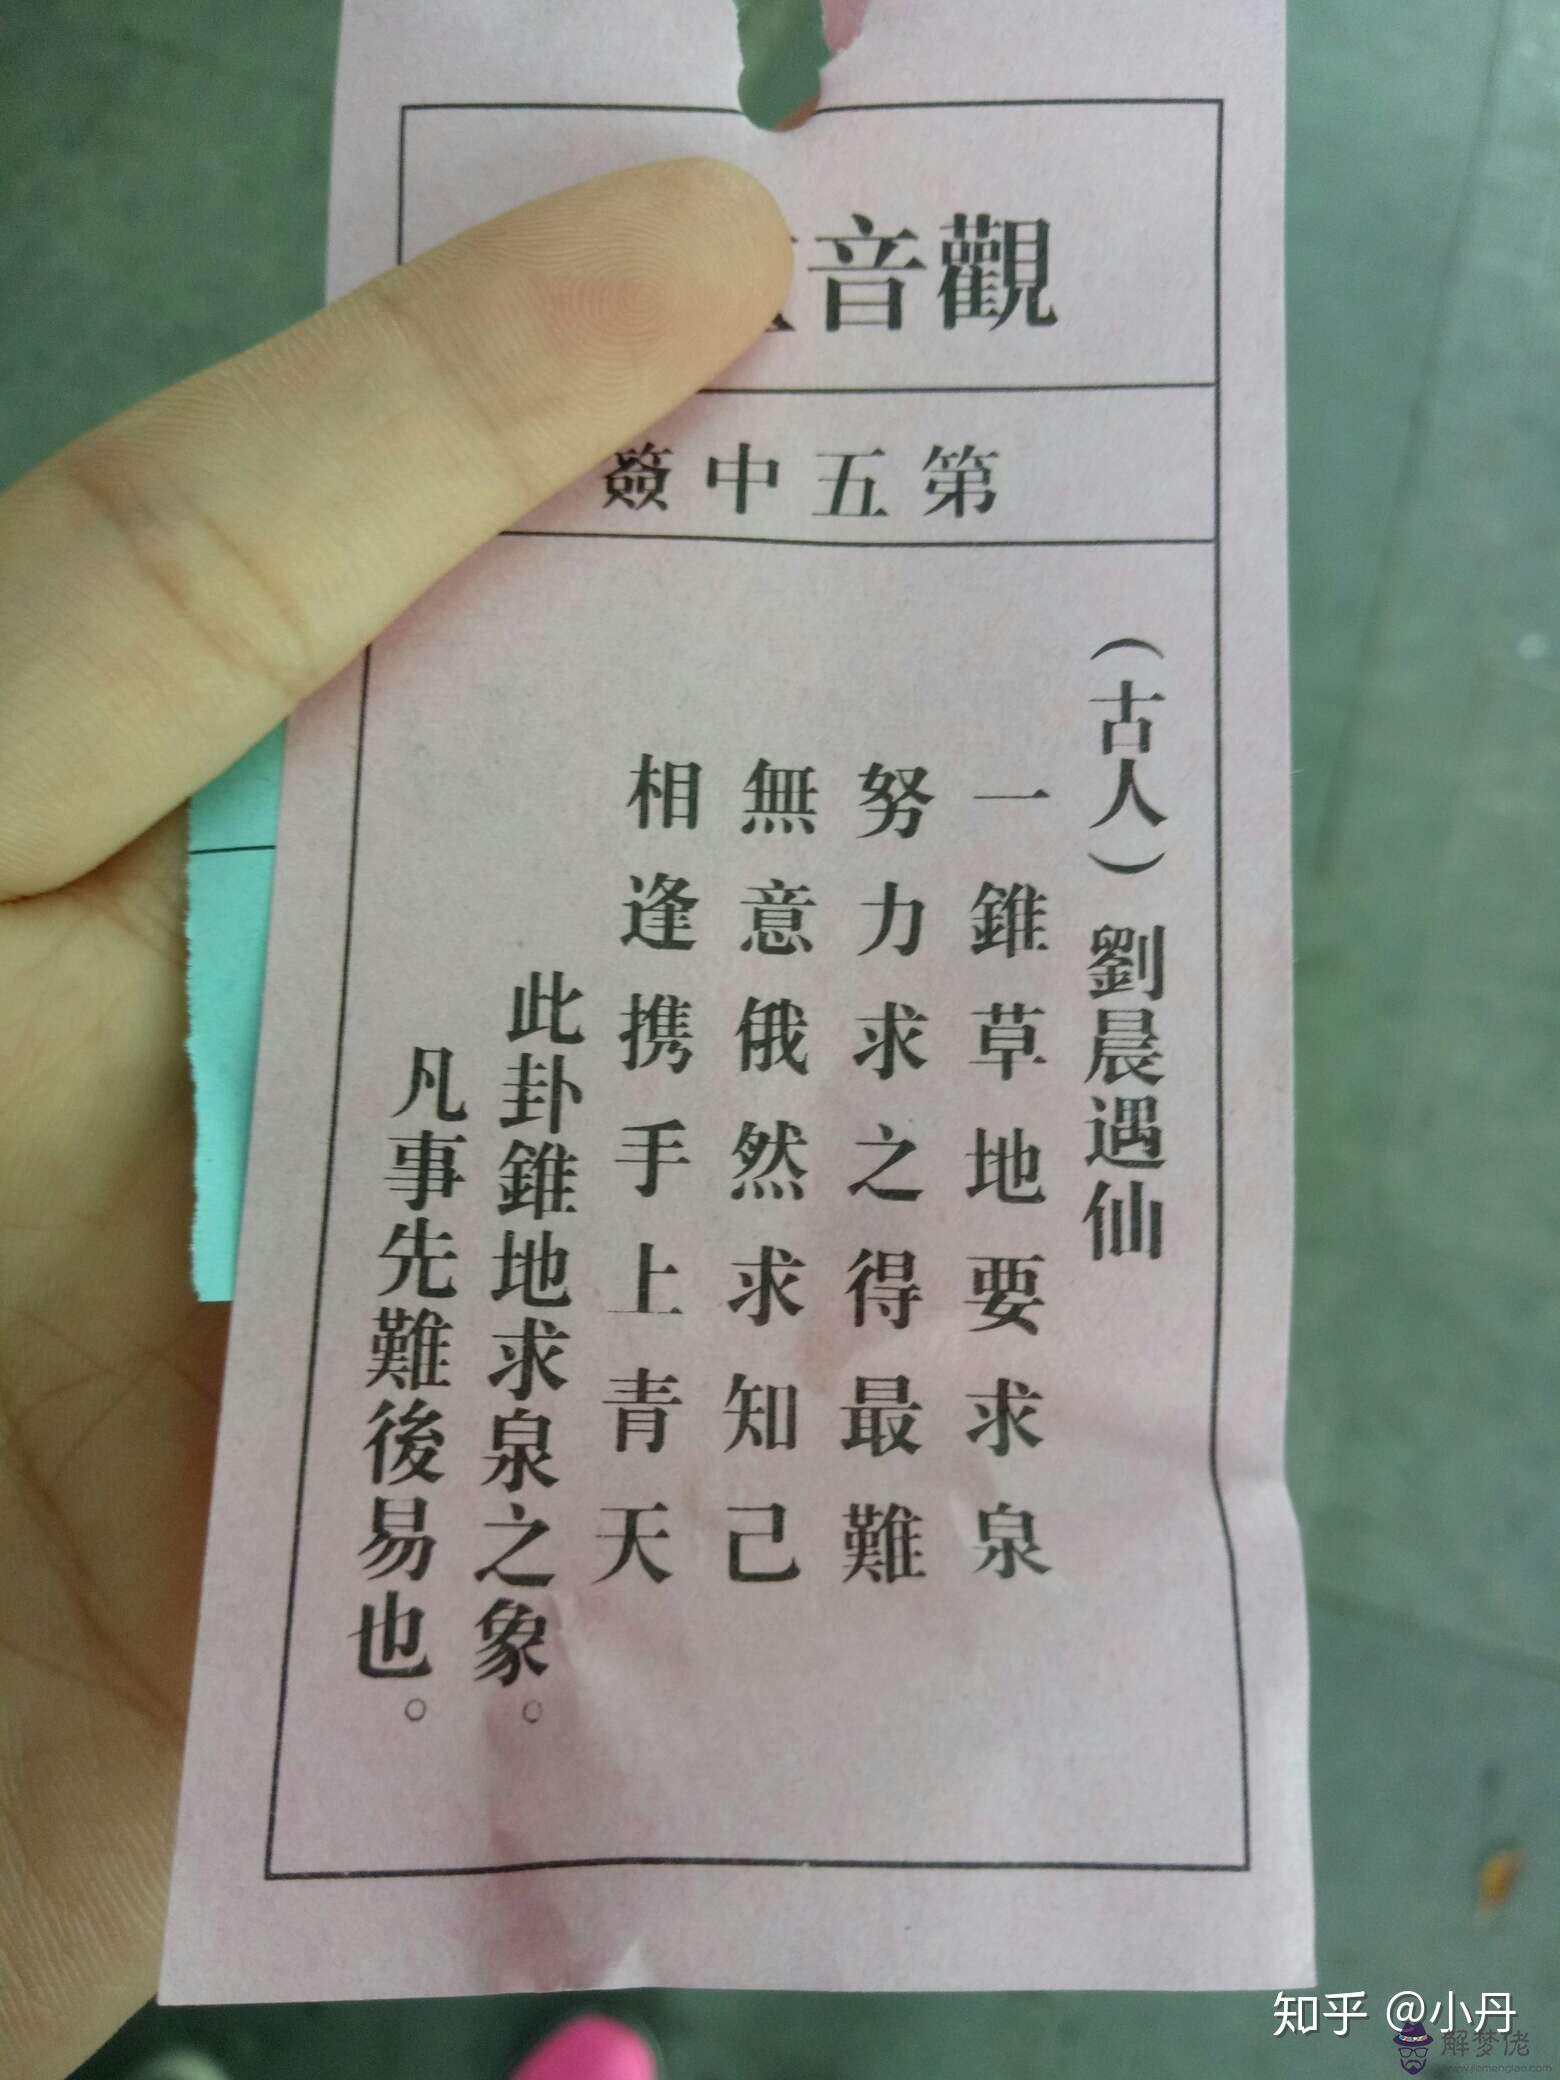 觀音
第五中簽
（古人）劉晨遇仙
一錐草地要求泉
努力求之得最難
無意俄然求知己
相逢携手上青天
此卦錐地求泉之象。
凡事先難後易也。
知乎 @小丹
解梦佬
www.jiemenglao.com